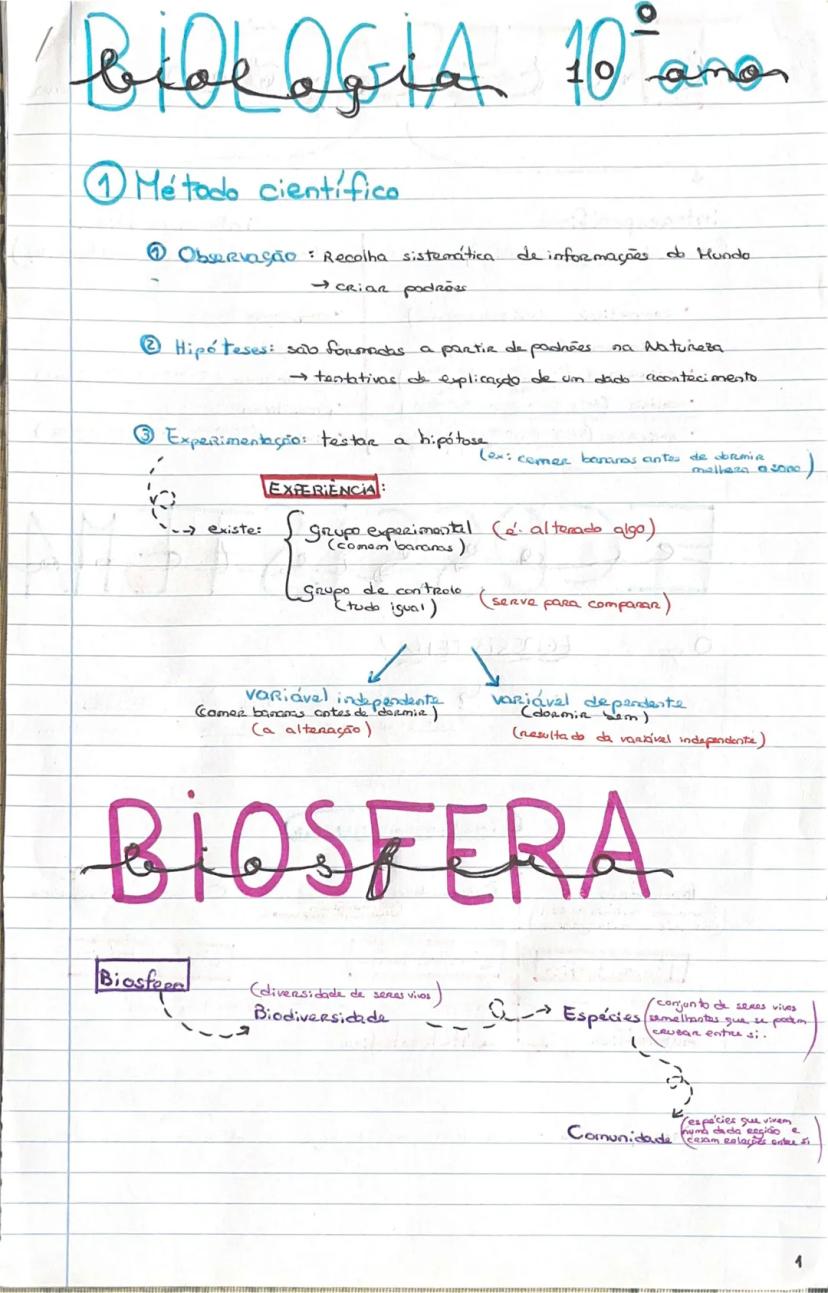 BIOLOGIA 10º ano
biologia 10 ano
① Método científico
① Observação: Recolha sistemática de informações do Mundo
→ criar padrões
② Hipóteses: são formadas a partir de padrões na Natureza
→ tentativas de explicação de um dado acontecimento
③ Experimentação: testar a hipótese
(ex: comer bananas antes de dormir
melhora o sono)
EXPERIÊNCIA:
→ existe: grupo experimental (é alterado algo)
(comem bananas)
grupo de controlo (serve para comparar)
(tudo igual)
variável independente variável dependente
(comer bananas antes de dormir) (dormir bem)
(a alteração) (resultado da variável independente)
BIOSFERA
biosfera
Biosfera
(diversidade de seres vivos)
Biodiversidade
Espécies (conjunto de seres vivos
semelhantes que se podem
cruzar entre si.
)
Comunidade (espécies que vivem
numa dada região e
criam relações entre si)
1